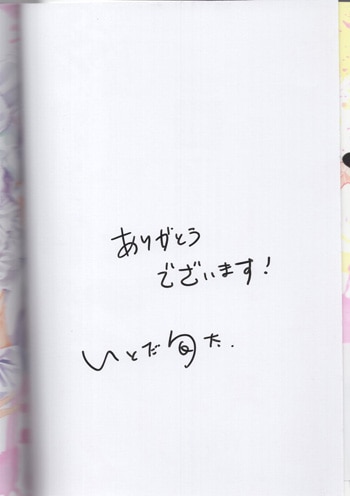 ありがとう
ございます!
いとだ旬太.